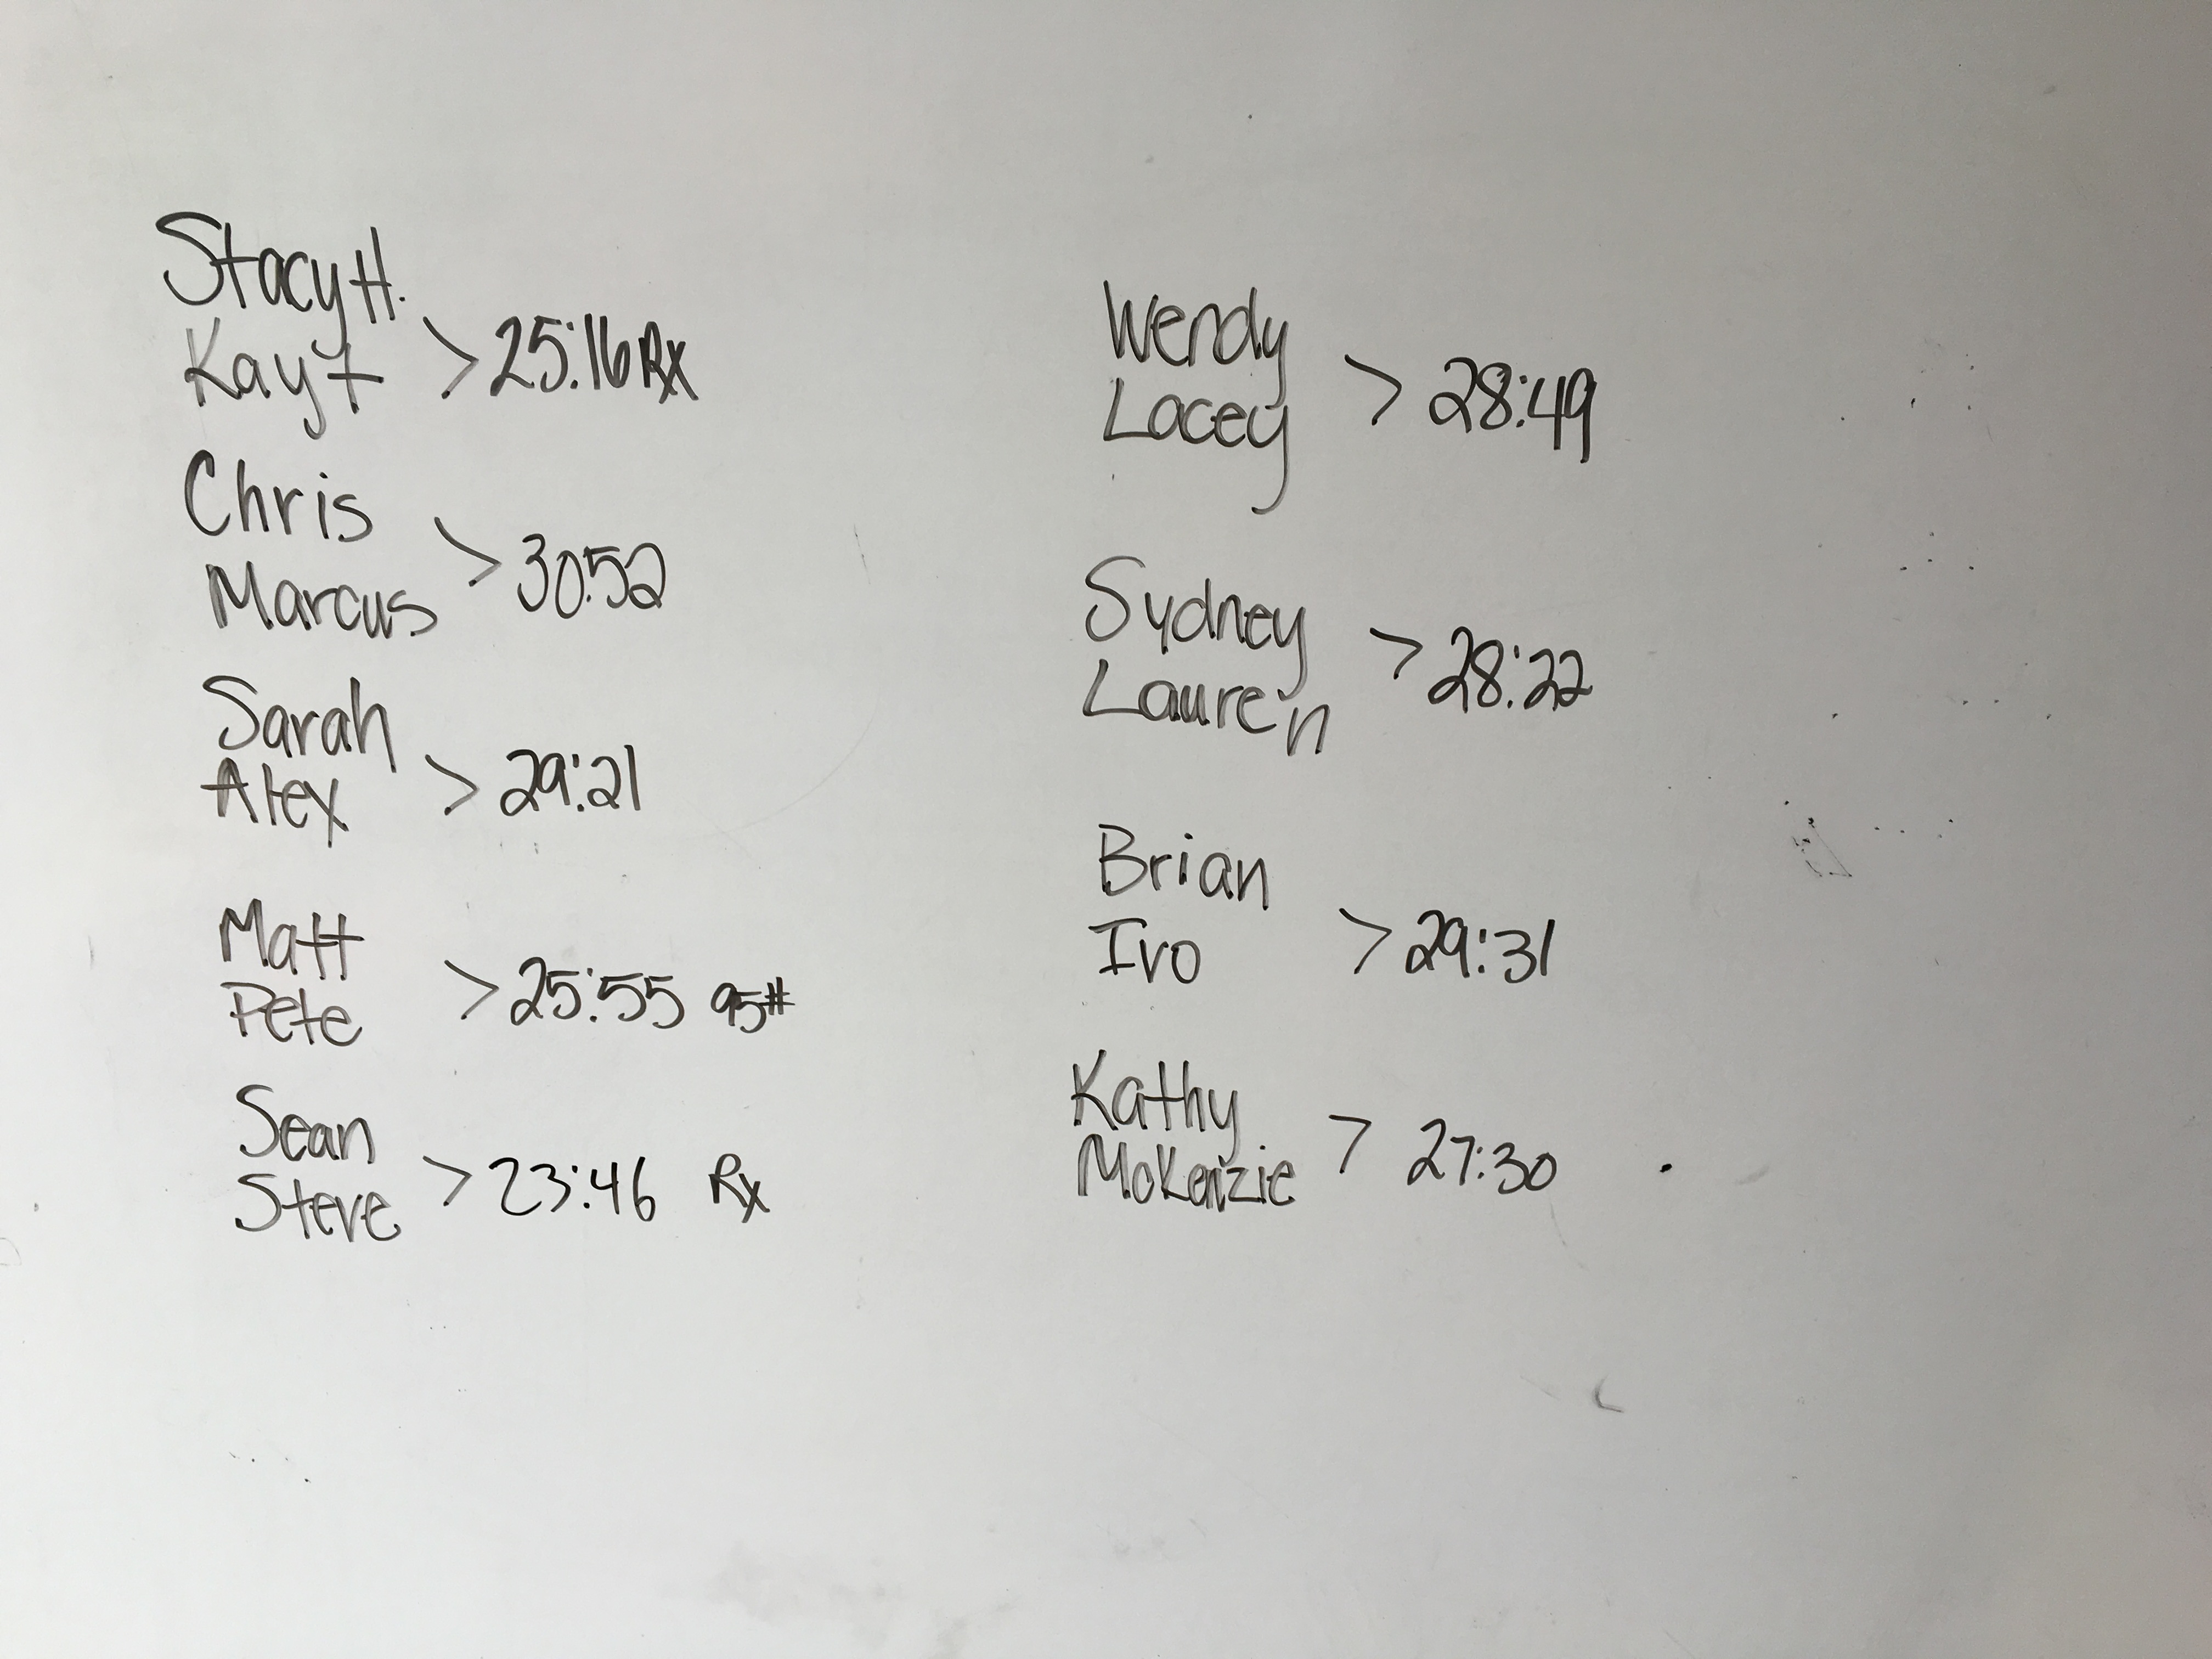 Stacy H.
Kayt > 25:16 Rx
Chris
Marcus > 30:52
Sarah
Alex > 29:21
Matt
Pete > 25:55 95#
Sean
Steve > 23:46 Rx
Wendy
Lacey > 28:49
Sydney
Lauren > 28:22
Brian
Ivo > 29:31
Kathy
McKenzie > 27:30